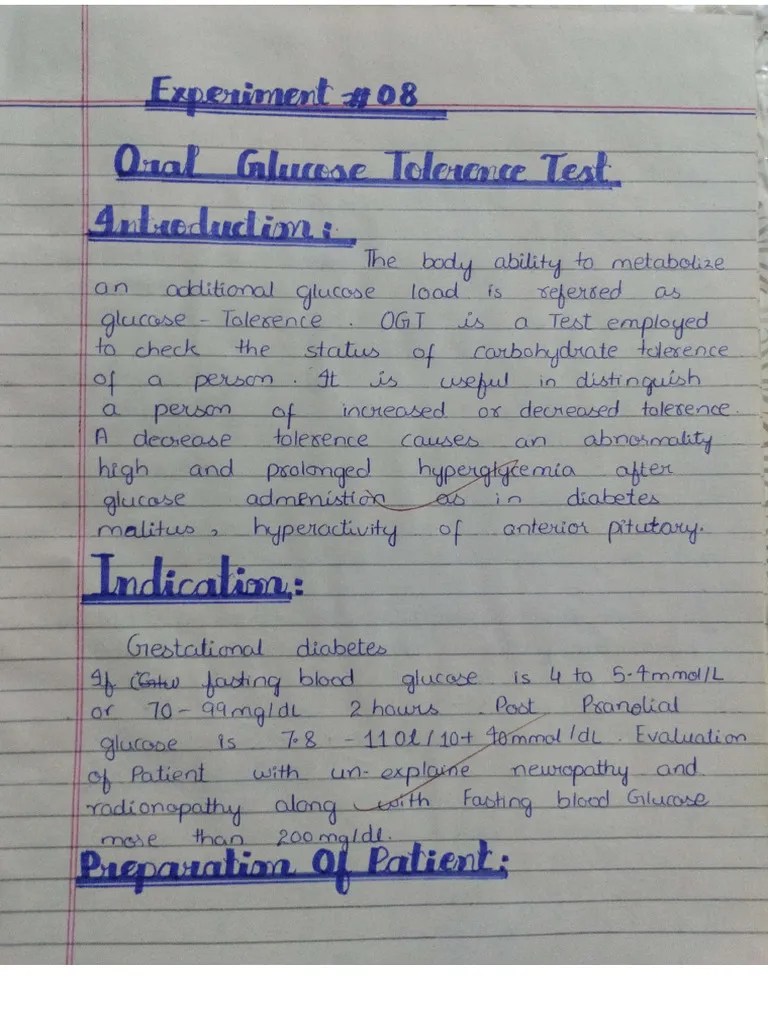 Experiment # 08
Oral Glucose Tolerence Test
Introduction:
The body ability to metabolize
an additional glucose load is referred as
glucose - Tolerence. OGT is a Test employed
to check the status of carbohydrate tolerence
of a person. It is useful in distinguish
a person of increased or decreased tolerence.
A decrease tolerence causes an abnormality
high and prolonged hyperglycemia after
glucose admenistion as in diabetes
malitus, hyperactivity of anterior pitutary.
Indication:
Gestational diabetes
If fasting blood glucose is 4 to 5.4mmol/L
or 70-99mg/dL 2 hours Post Prandial
glucose is 7.8 - 110l/10+ mmol/dL. Evaluation
of Patient with un-explaine neuropathy and
radionopathy along with Fasting blood Glucose
more than 200mg/dl.
Preparation Of Patient: